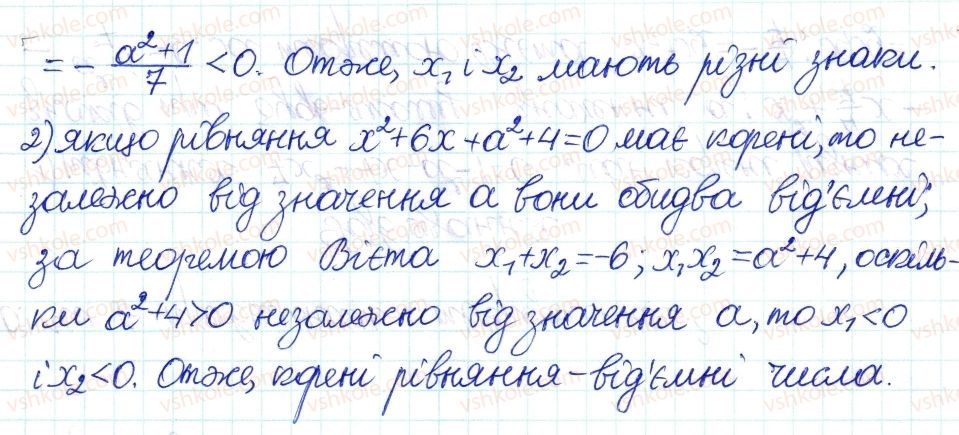 = - \frac{a²+1}{7} < 0. Отже, x₁ і x₂ мають різні знаки.
2) якщо рівняння x²+6x+a²+4=0 має корені, то не-
залежно від значення a вони обидва від'ємні;
за теоремою Вієта x₁+x₂=-6; x₁x₂=a²+4, оскіль-
ки a²+4>0 незалежно від значення a, то x₁<0
і x₂<0. Отже, корені рівняння - від'ємні числа.